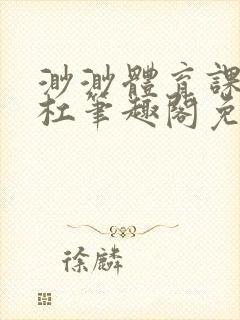 渺渺體育課
杜筆趣閣免
徐麟